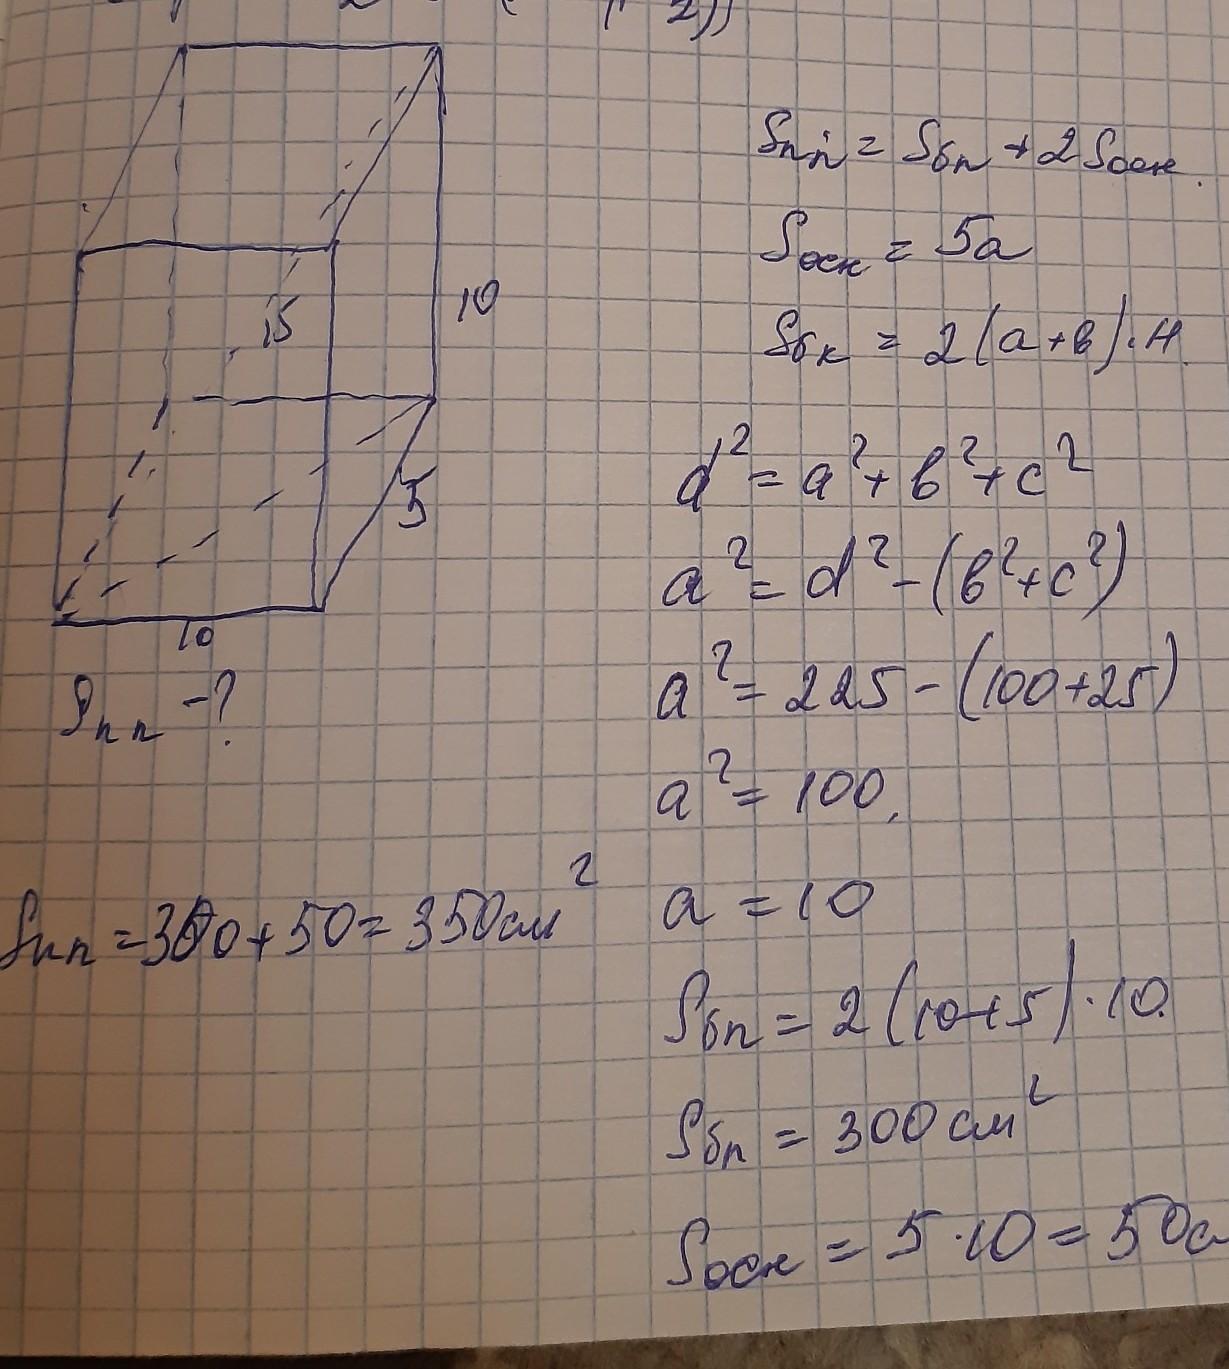 15
10
5
10
Sпп - ?
Sпп = 300 + 50 = 350 см²
Sпп = Sбп + 2Sосн.
Sосн = 5a
Sбп = 2(a+в)·H
d² = a² + в² + c²
a² = d² - (в² + c²)
a² = 225 - (100 + 25)
a² = 100,
a = 10
Sбп = 2(10+5)·10.
Sбп = 300 см²
Sосн = 5·10 = 50с